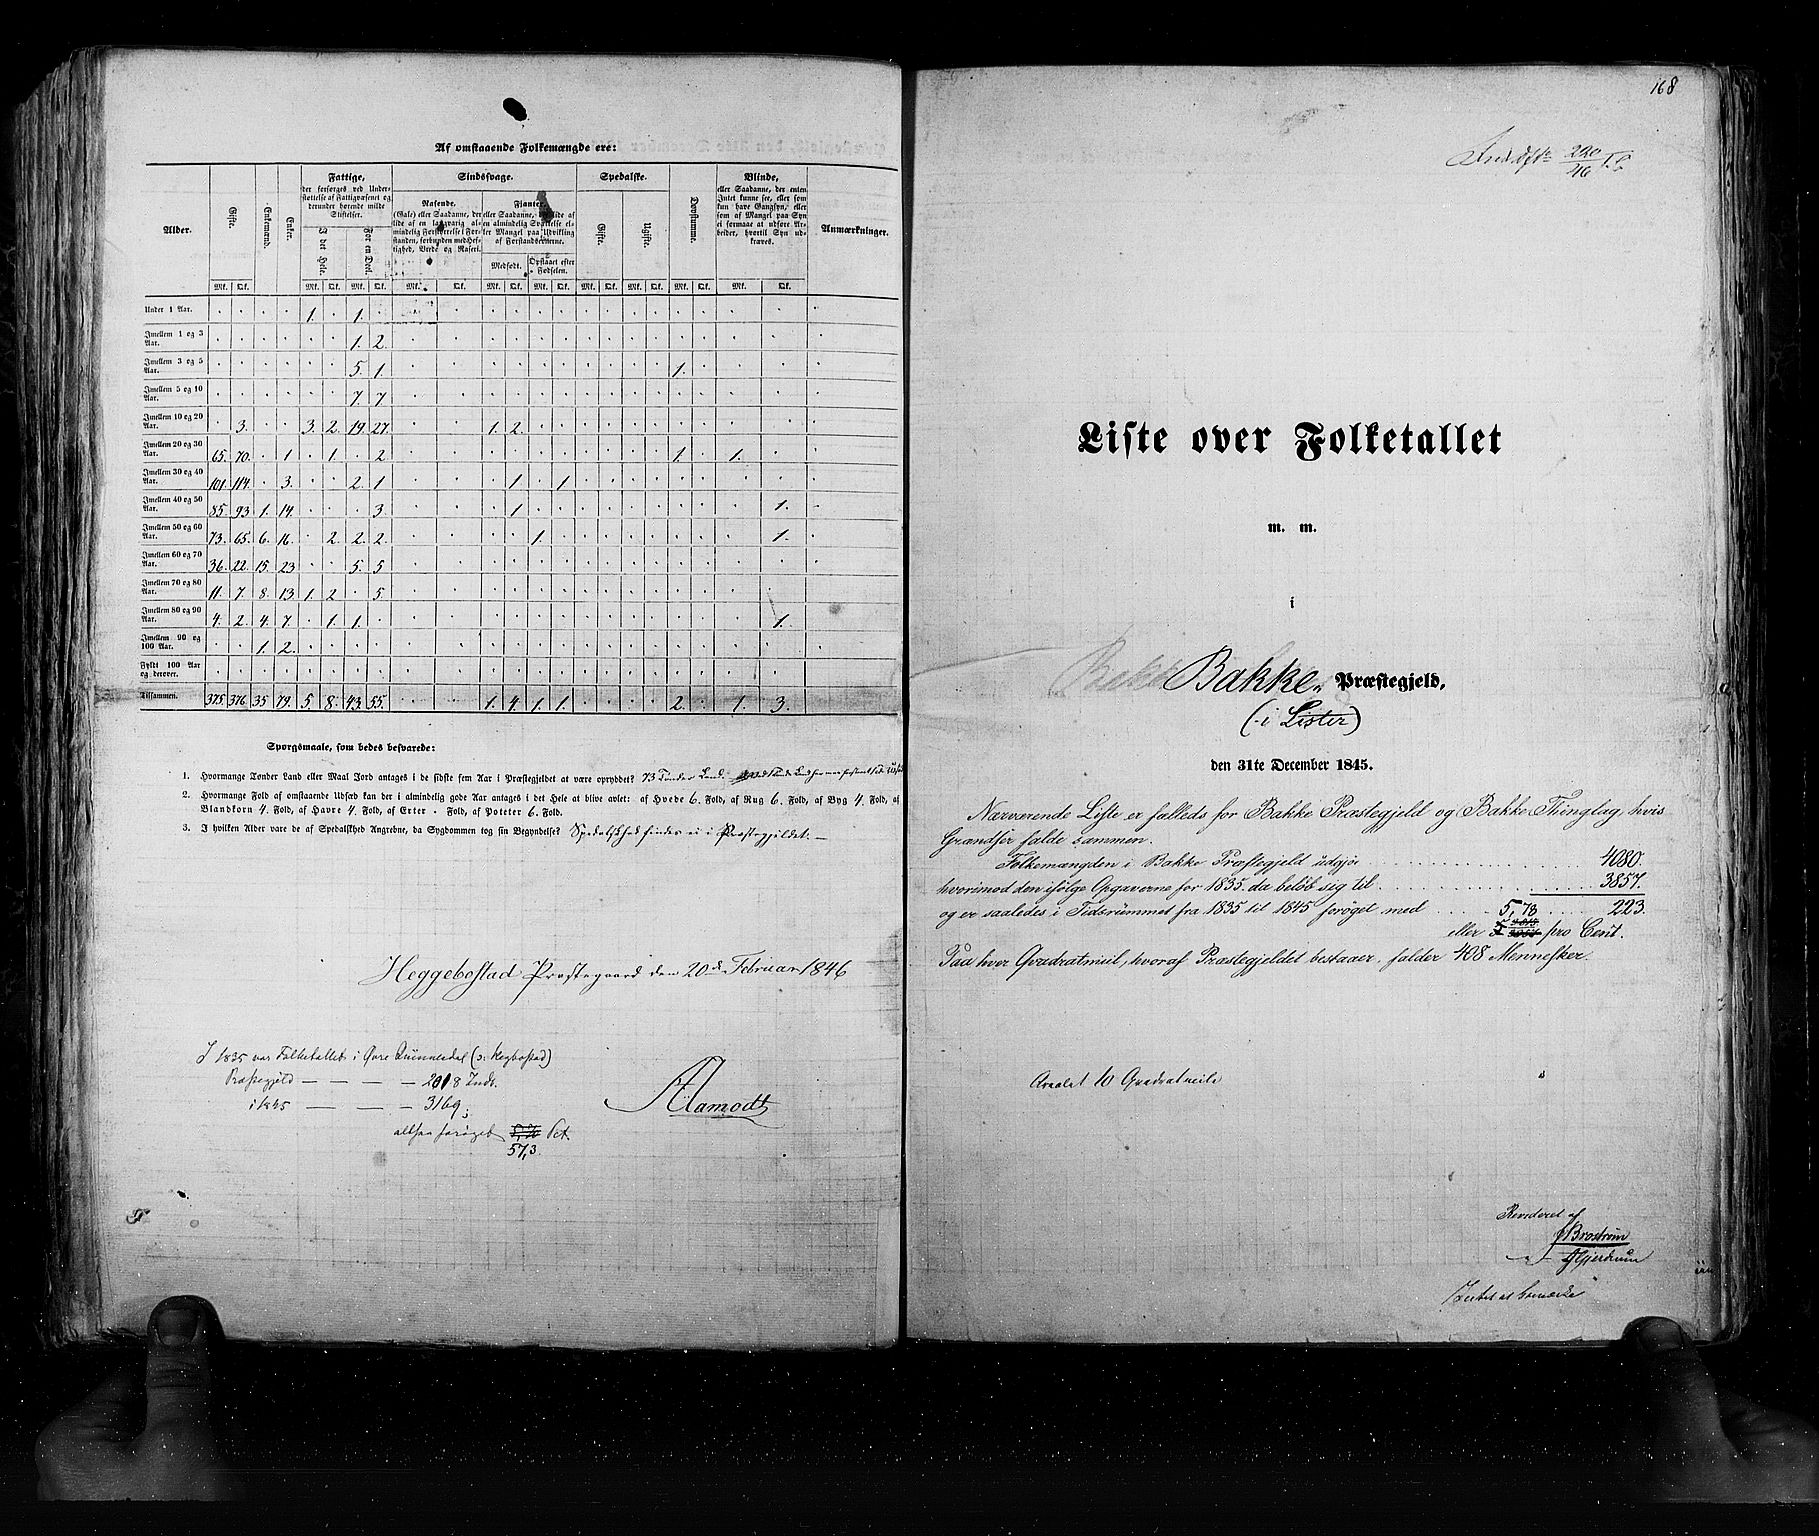 Af omstaaende Folkemængde ere:
Alder. Gifte. Enkemænd. Enker. Fattige, der forsørges ved Understøttelse af Fattigvæsenet og derunder hørende milde Stiftelser. Sindssvage. Spedalske. Døvstumme. Blinde, eller Saadanne, der enten Intet kunne see, eller som kun have Gangsyn, eller som af Mangel paa Syn ei formaae at udføre Arbeider, hvortil Syn udkræves. Anmærkninger.
I det Hele. For en Deel. Rasende. (Gale) eller Saadanne, der lide af en langvarig almindelig Forstyrrelse i Forstanden, forbunden med Heftighed, Vrede og Raseri. Fianter, eller Saadanne, der lide af en almindelig Svækkelse eller Mangel paa Udvikling af Forstandsevnerne. Gifte. Ugifte.
Medfødt. Opstaaet efter Fødselen.
Mk. Qk. Mk. Qk. Mk. Qk. Mk. Qk. Mk. Qk. Mk. Qk. Mk. Qk. Mk. Qk. Mk. Qk. Mk. Qk.
Under 1 Aar. 1. 1.
Imellem 1 og 3 Aar. 1. 2.
Imellem 3 og 5 Aar. 5. 1. 1.
Imellem 5 og 10 Aar. 7. 7
Imellem 10 og 20 Aar. 3. 3. 2. 19. 27. 1. 2.
Imellem 20 og 30 Aar. 65. 70. 1 1. 2. 1. 1.
Imellem 30 og 40 Aar. 101. 114. 3. 2. 1 1. 1
Imellem 40 og 50 Aar. 85. 93 1. 14. 3. 1. 1.
Imellem 50 og 60 Aar. 73. 65. 6. 16. 2. 2. 2. 1. 1.
Imellem 60 og 70 Aar. 36. 22. 15. 23 5. 5
Imellem 70 og 80 Aar. 11. 7. 8. 13. 1. 2. 5.
Imellem 80 og 90 Aar. 4. 2. 4. 7. 1. 1. 1.
Imellem 90 og 100 Aar. 1. 2.
Fyldt 100 Aar og derover.
Tilsammen. 375. 376. 35 79. 5. 8. 43. 55. 1. 4. 1. 1. 2. 1. 3.
Spørgsmaale, som bedes besvarede:
1. Hvormange Tønder Land eller Maal Jord antages i de sidste fem Aar i Præstegjeldet at være opryddet? 73 Tønder Land.
2. Hvormange Fold af omstaaende Udsæd kan der i almindelig gode Aar antages i det Hele at blive avlet: af Hvede 6. Fold, af Rug 6. Fold, af Byg 4. Fold, af
Blandkorn 4. Fold, af Havre 4. Fold, af Erter - Fold, af Poteter 6. Fold.
3. I hvilken Alder vare de af Spedalskhed Angrebne, da Sygdommen tog sin Begyndelse? Spedalskhed findes ei i Præstegjeldet. —
Heggebostad Præstegaard den 20de Februar 1846
I 1835 var Folketallet i Øvre Quinnesdal (ɔ: Hegbostad)
Præstegjeld — — — — 2018 Indv.
i 1845 — — — 3169;
altsaa forøget Pct.
57,3.
Aamodt
168
Liste over Folketallet
m. m.
i
Bakke Præstegjeld,
(i Lister)
den 31te December 1845.
Nærværende Liste er fælleds for Bakke Præstegjeld og Bakke Thinglag, hvis
Grændser falde sammen.
Folkemængden i Bakke Præstegjeld udgjør . . . . . . 4080.
hvorimod den ifølge Opgaverne for 1835 da beløb sig til . . . . . . 3857.
og er saaledes i Tidsrummet fra 1835 til 1845 forøget med . . . . . . 223.
5,78
eller pro Cent.
Paa hver Qvadratmiil, hvoraf Præstegjeldet bestaaer, falder 408 Mennesker.
Arealet 10 Qvadratmile
Revideret af
Brostrøm
Gjerdrum